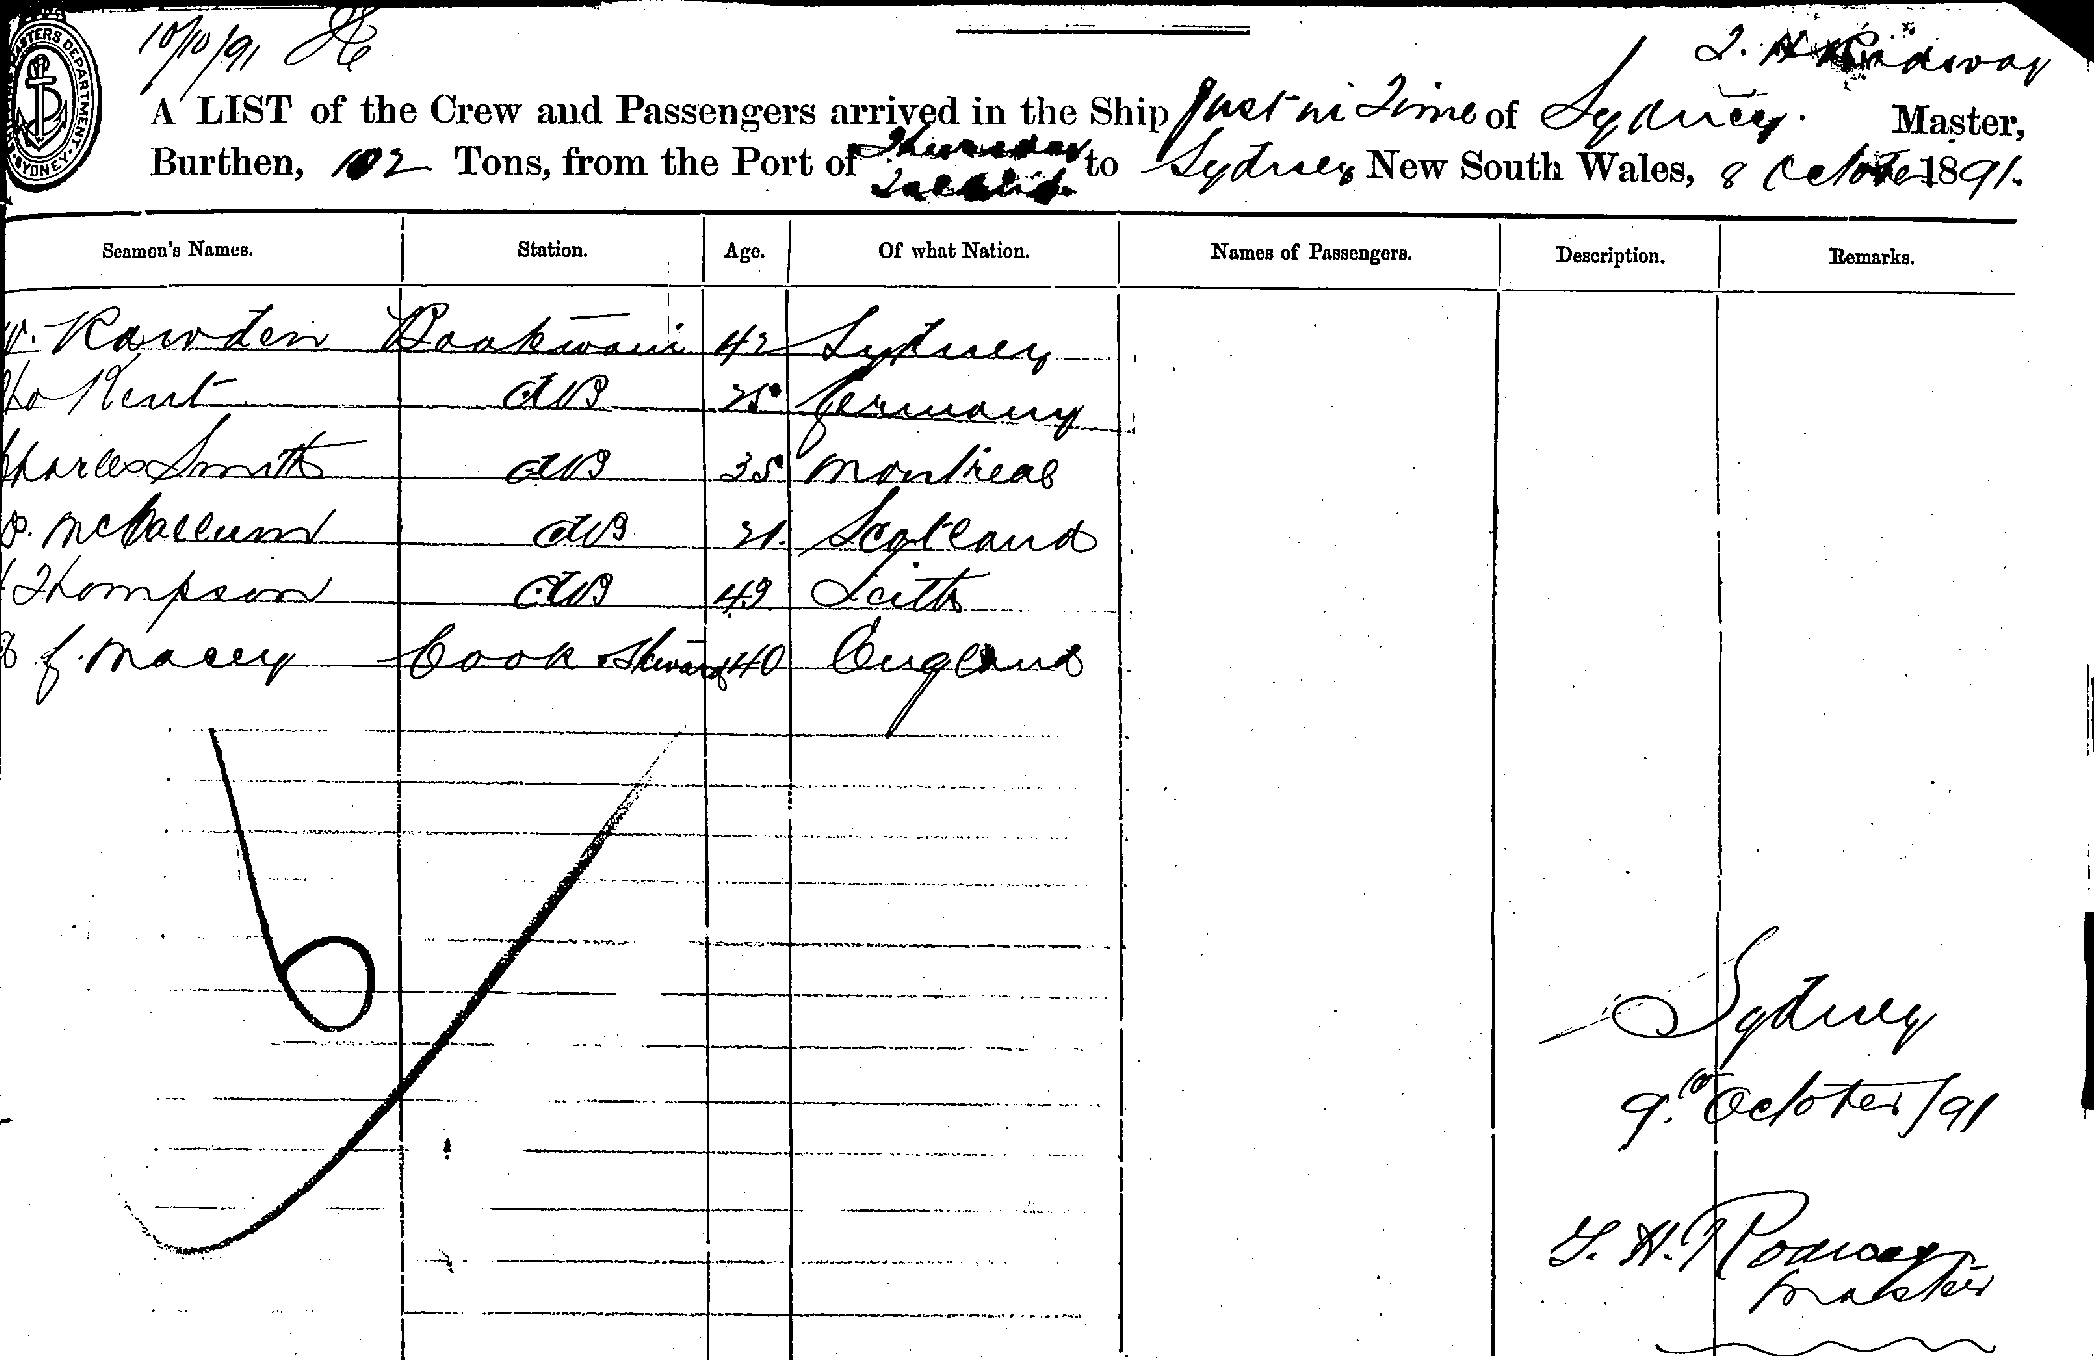 10/10/91
T. H. Rodway
A LIST of the Crew and Passengers arrived in the Ship Just in Time of Sydney. Master,
Burthen, 102 Tons, from the Port of Thursday Island to Sydney New South Wales, 8 October 1891.
Seamen's Names. Station. Age. Of what Nation. Names of Passengers. Description. Remarks.
W. Rawden Boatswain 42 Sydney
Kent AB 25 Germany
Charles Smith AB 35 Montreal
D. McCallum AB 21. Scotland
Thompson AB 49 Leith
J. Macey Cook & Steward 40 England
Sydney
9th October /91
T. H. Rodway
Master